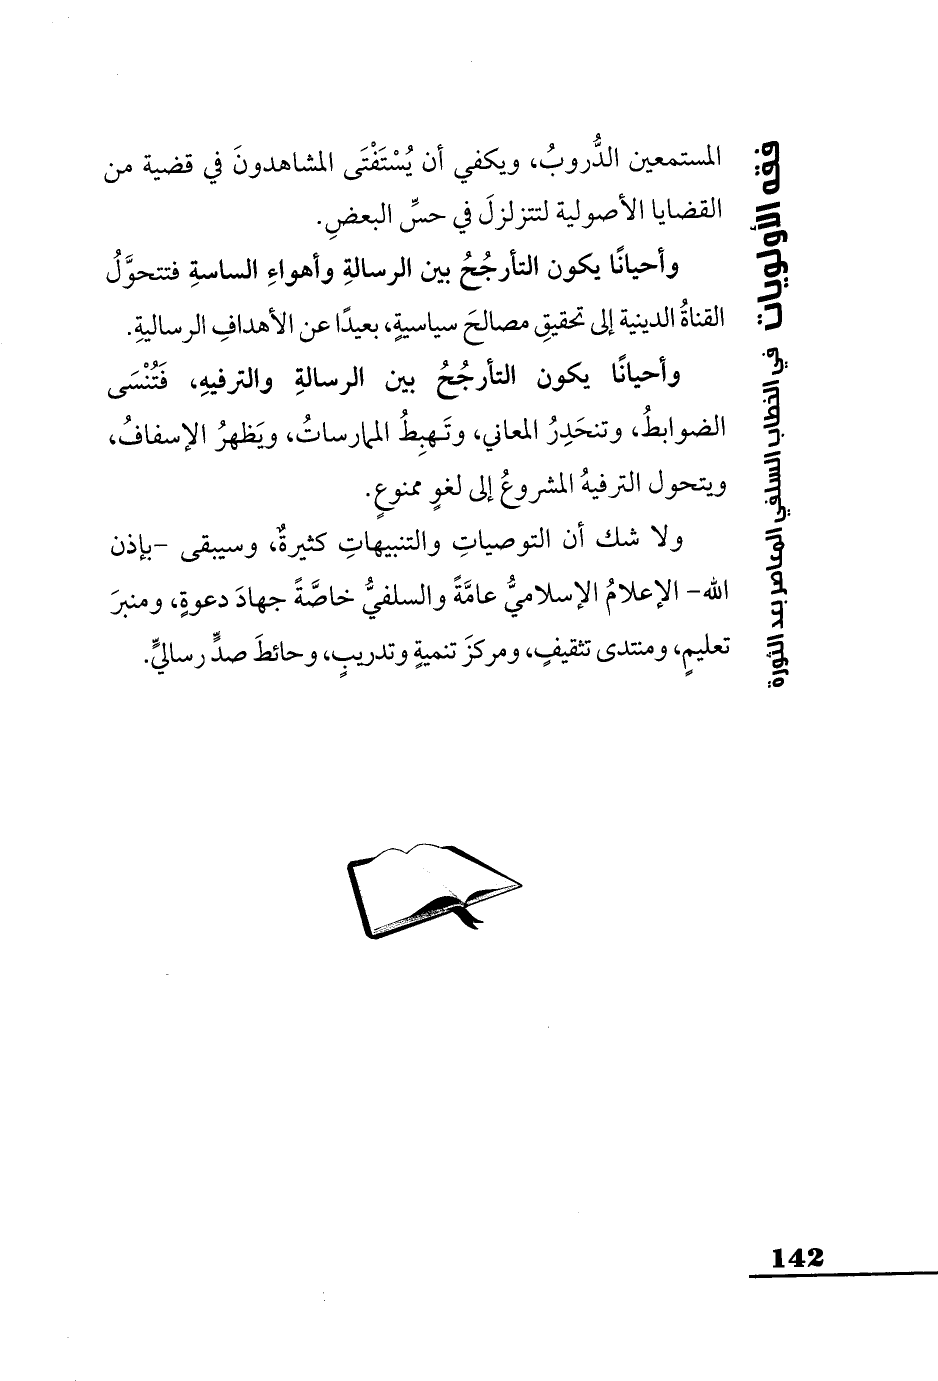 فقه الأولويات في الخطاب السلفي المعاصر بعد الثورة
المستمعين الدُّروبُ، ويكفي أن يُسْتَفْتَى المشاهدونَ في قضية من
القضايا الأصولية لتتزلزلَ في حسِّ البعضِ.
وأحيانًا يكون التأرجُحُ بين الرسالةِ وأهواءِ الساسةِ فتتحوَّلُ
القناةُ الدينية إلى تحقيقِ مصالحَ سياسيةٍ، بعيدًا عن الأهدافِ الرساليةِ.
وأحيانًا يكون التأرجُحُ بين الرسالةِ والترفيهِ، فَتُنْسَى
الضوابطُ، وتنحَدِرُ المعاني، وتَهبِطُ الممارساتُ، ويَظهرُ الإسفافُ،
ويتحول الترفيهُ المشروعُ إلى لغوٍ ممنوعٍ.
ولا شك أن التوصياتِ والتنبيهاتِ كثيرةٌ، وسيبقى -بإذن
الله- الإعلامُ الإسلاميُّ عامَّةً والسلفيُّ خاصَّةً جهادَ دعوةٍ، ومنبرَ
تعليمٍ، ومنتدى تثقيفٍ، ومركزَ تنميةٍ وتدريبٍ، وحائطَ صدٍّ رساليٍّ.
142